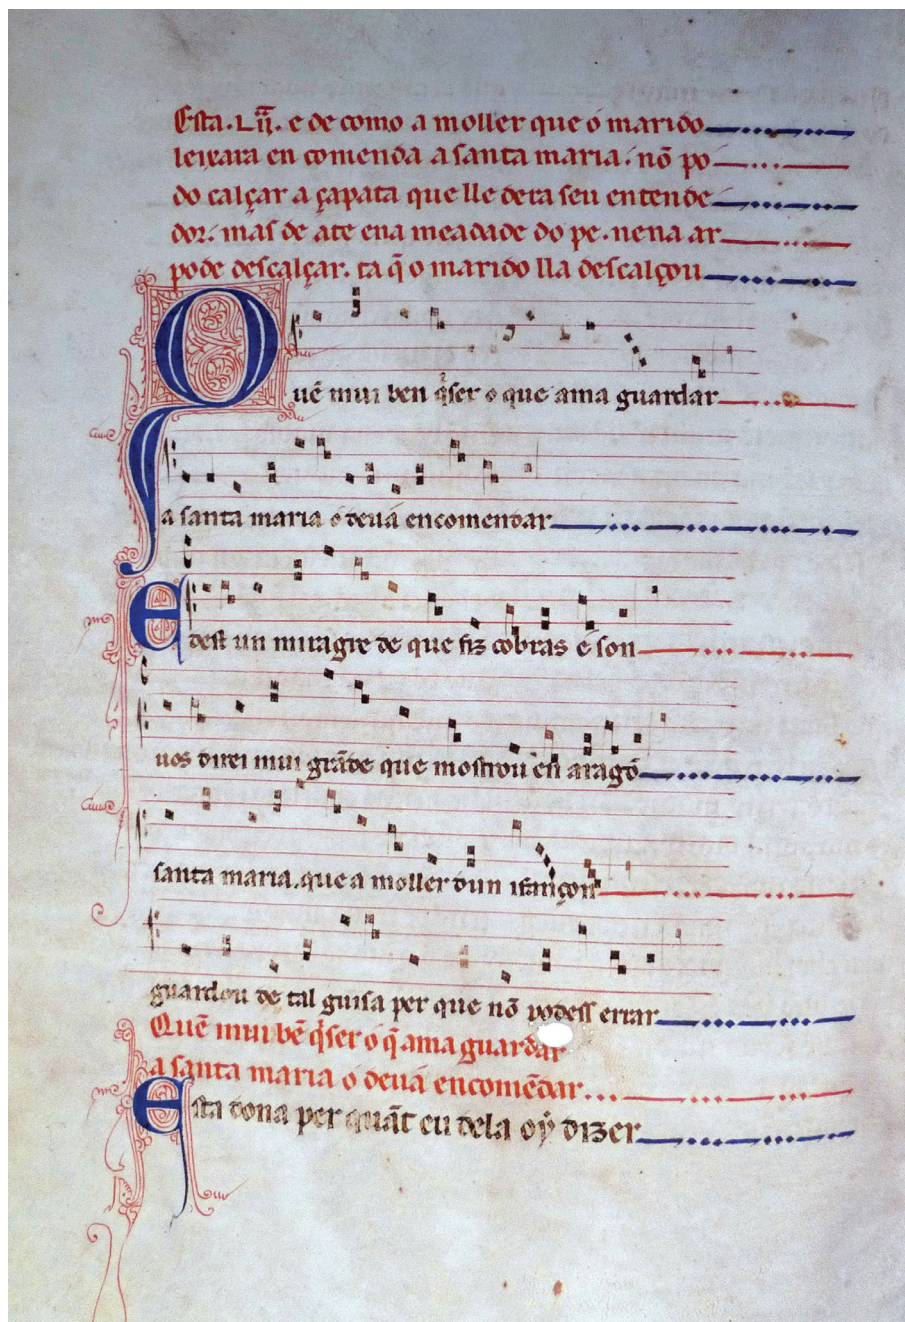 Esta .L ii. e de como a moller que o marido
leixara en comenda a santa maria. nõ po
do calçar a çapata que lle dera seu entende
dor. mas de ate ena meadade do pe. nena ar
pode descalçar. ta q̃ o marido lla descalçou
Quẽ mui ben q̇ser o que ama guardar
a santa maria o deuá encomendar
E dest un miragre de que fiz cobras e son
uos direi mui grãde que mostrou en aragõ
santa maria. que a moller dun infançon
guardou de tal guisa per que nõ podess errar
Quẽ mui bẽ q̇ser o q̃ ama guardar
a santa maria o deuá encomẽdar
Esta dona per quãt eu dela oý dizer